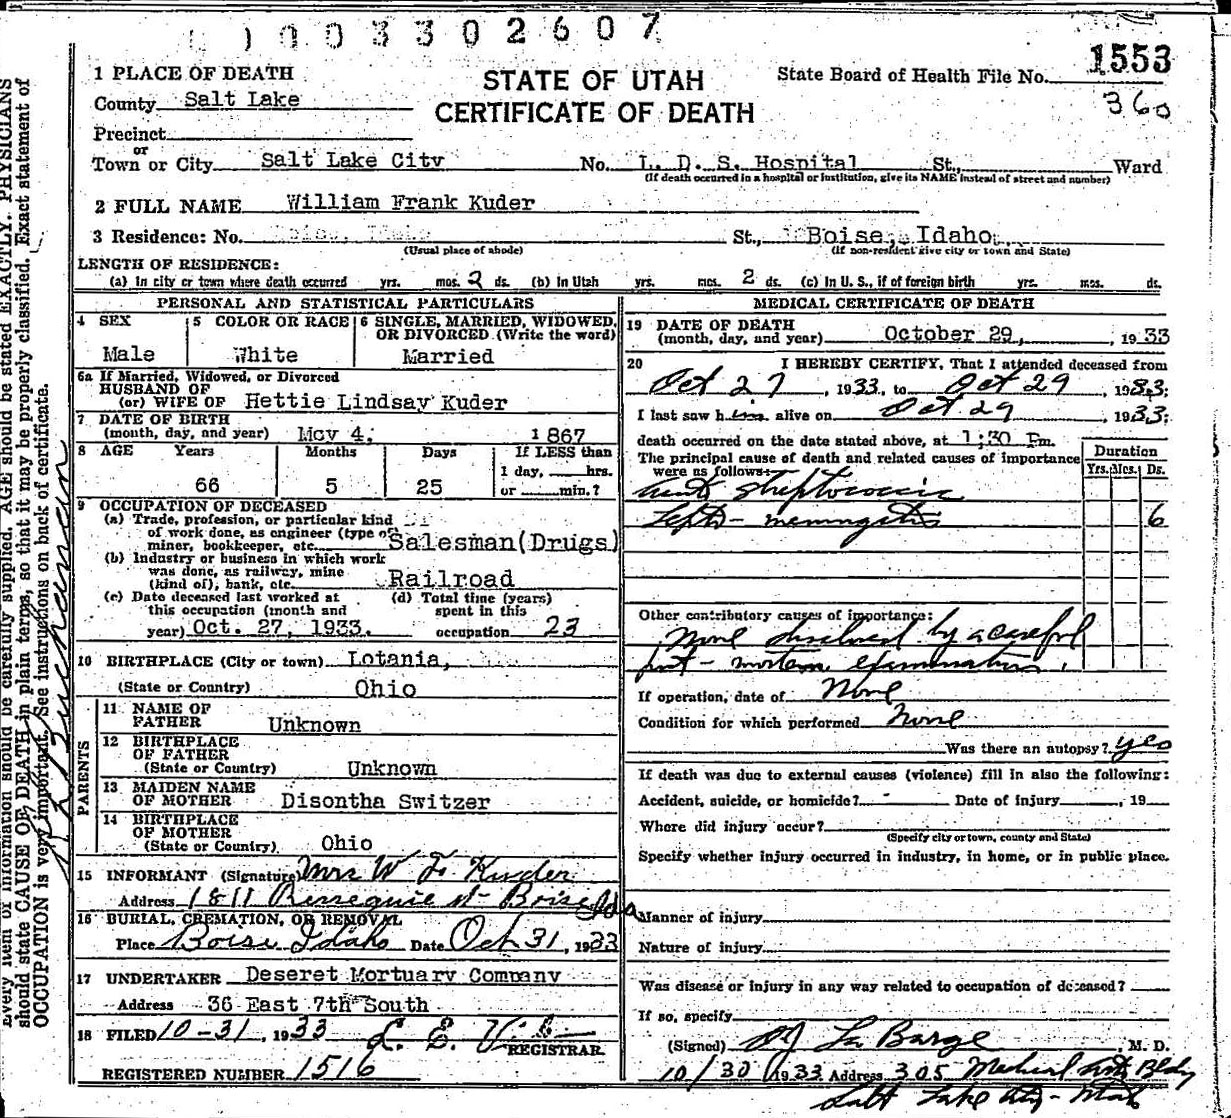 003302607
1553
360
1 PLACE OF DEATH
STATE OF UTAH
CERTIFICATE OF DEATH
State Board of Health File No.
County Salt Lake
Precinct
or
Town or City Salt Lake City No. L. D. S. Hospital St., Ward
(If death occurred in a hospital or institution, give its NAME instead of street and number)
2 FULL NAME William Frank Kuder
3 Residence: No. St., Boise, Idaho
(Usual place of abode) (If non-resident give city or town and State)
LENGTH OF RESIDENCE:
(a) In city or town where death occurred yrs. mos. 2 ds. (b) In Utah yrs. mos. 2 ds. (c) In U. S., if of foreign birth yrs. mos. ds.
PERSONAL AND STATISTICAL PARTICULARS
4 SEX 5 COLOR OR RACE 6 SINGLE, MARRIED, WIDOWED, OR DIVORCED (Write the word)
Male White Married
6a If Married, Widowed, or Divorced
HUSBAND OF
(or) WIFE OF Hettie Lindsay Kuder
7 DATE OF BIRTH
(month, day, and year) May 4, 1867
8 AGE Years Months Days If LESS than
1 day, hrs.
66 5 25 or min.?
9 OCCUPATION OF DECEASED
(a) Trade, profession, or particular kind
of work done, as engineer (type of
miner, bookkeeper, etc. Salesman(Drugs)
(b) Industry or business in which work
was done, as railway, mine
(kind of), bank, etc. Railroad
(c) Date deceased last worked at (d) Total time (years)
this occupation (month and spent in this
year) Oct. 27, 1933. occupation 23
10 BIRTHPLACE (City or town) Lotania,
(State or Country) Ohio
PARENTS
11 NAME OF
FATHER Unknown
12 BIRTHPLACE
OF FATHER
(State or Country) Unknown
13 MAIDEN NAME
OF MOTHER Disontha Switzer
14 BIRTHPLACE
OF MOTHER
(State or Country) Ohio
15 INFORMANT (Signature) Mrs W. F. Kuder
Address 1811 St Boise Ida
16 BURIAL, CREMATION, OR REMOVAL
Place Boise Idaho Date Oct 31, 1933
17 UNDERTAKER Deseret Mortuary Company
Address 36 East 7th South
18 FILED 10-31, 1933 L. E.
REGISTRAR
REGISTERED NUMBER 1516
MEDICAL CERTIFICATE OF DEATH
19 DATE OF DEATH
(month, day, and year) October 29, , 1933
20 I HEREBY CERTIFY, That I attended deceased from
Oct 27, 1933, to Oct 29, 1933;
I last saw him alive on Oct 29, 1933;
death occurred on the date stated above, at 1:30 Pm.
The principal cause of death and related causes of importance
were as follows:
Duration
Yrs. Mos. Ds.
streptococcic
Septo-meningitis 6
Other contributory causes of importance:
None disclosed by a careful
post-mortem examination.
If operation, date of None
Condition for which performed None
Was there an autopsy? yes
If death was due to external causes (violence) fill in also the following:
Accident, suicide, or homicide? - Date of injury , 19
Where did injury occur?
(Specify city or town, county and State)
Specify whether injury occurred in industry, in home, or in public place.
Manner of injury
Nature of injury
Was disease or injury in any way related to occupation of deceased?
If so, specify
(Signed) La Barge M. D.
10/30 1933 Address 305 Medical Arts Bldg
Salt Lake City - Utah
Every item of information should be carefully supplied. AGE should be stated EXACTLY. PHYSICIANS
should state CAUSE OF DEATH in plain terms, so that it may be properly classified. Exact statement of
OCCUPATION is very important. See instructions on back of certificate.